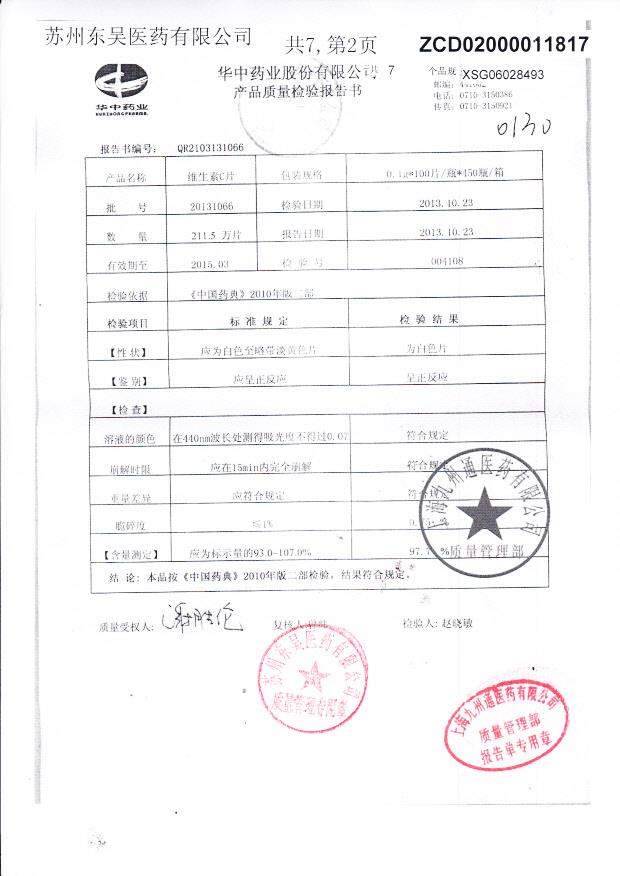 苏州东吴医药有限公司
共7,第2页
ZCD02000011817
华中药业股份有限公司 7
产品质量检验报告书
华中药业
HUAZHONG PHARMA.
个品规
XSG06028493
邮编:
电话: 0710-3150386
传真: 0710-3150921
0130
报告书编号: QR2103131066
产品名称 维生素C片 包装规格 0.1g*100片/瓶*450瓶/箱
批 号 20131066 检验日期 2013.10.23
数 量 211.5 万片 报告日期 2013.10.23
有效期至 2015.03 检 验 号 004108
检验依据 《中国药典》2010年版二部
检验项目 标 准 规 定 检 验 结 果
【性 状】 应为白色至略带淡黄色片 为白色片
【鉴 别】 应呈正反应 呈正反应
【检 查】
溶液的颜色 在440nm波长处测得吸光度不得过0.07 符合规定
崩解时限 应在15min内完全崩解 符合规
重量差异 应符合规定 符合规
脆碎度 ≤1% 0.
【含量测定】 应为标示量的93.0-107.0% 97.7%
结 论: 本品按《中国药典》2010年版二部检验, 结果符合规定。
上海九州通医药有限公司
质量管理部
质量受权人:
复核人:
检验人: 赵晓敏
苏州东吴医药有限公司
质量管理专用章
上海九州通医药有限公司
质量管理部
报告单专用章